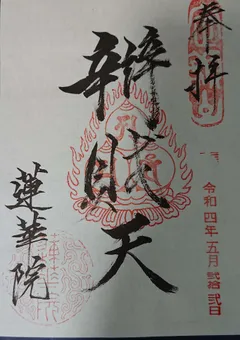 奉拝
辨財天
令和四年五月弐拾弐日
蓮華院